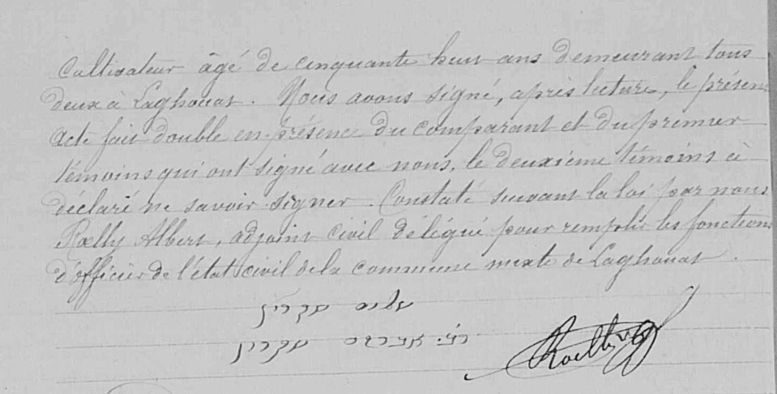 Cultivateur âgé de cinquante huit ans demeurant tous
deux à Laghouat. Nous avons signé, après lecture, le présent
acte fait double en présence du comparant et du premier
témoins qui ont signé avec nous, le deuxième témoins à
déclaré ne savoir signer. Constaté suivant la loi par nous
Roelly Albert, adjoint civil délégué pour remplir les fonctions
d'officier de l'état civil de la commune mixte de Laghouat.
Roelly